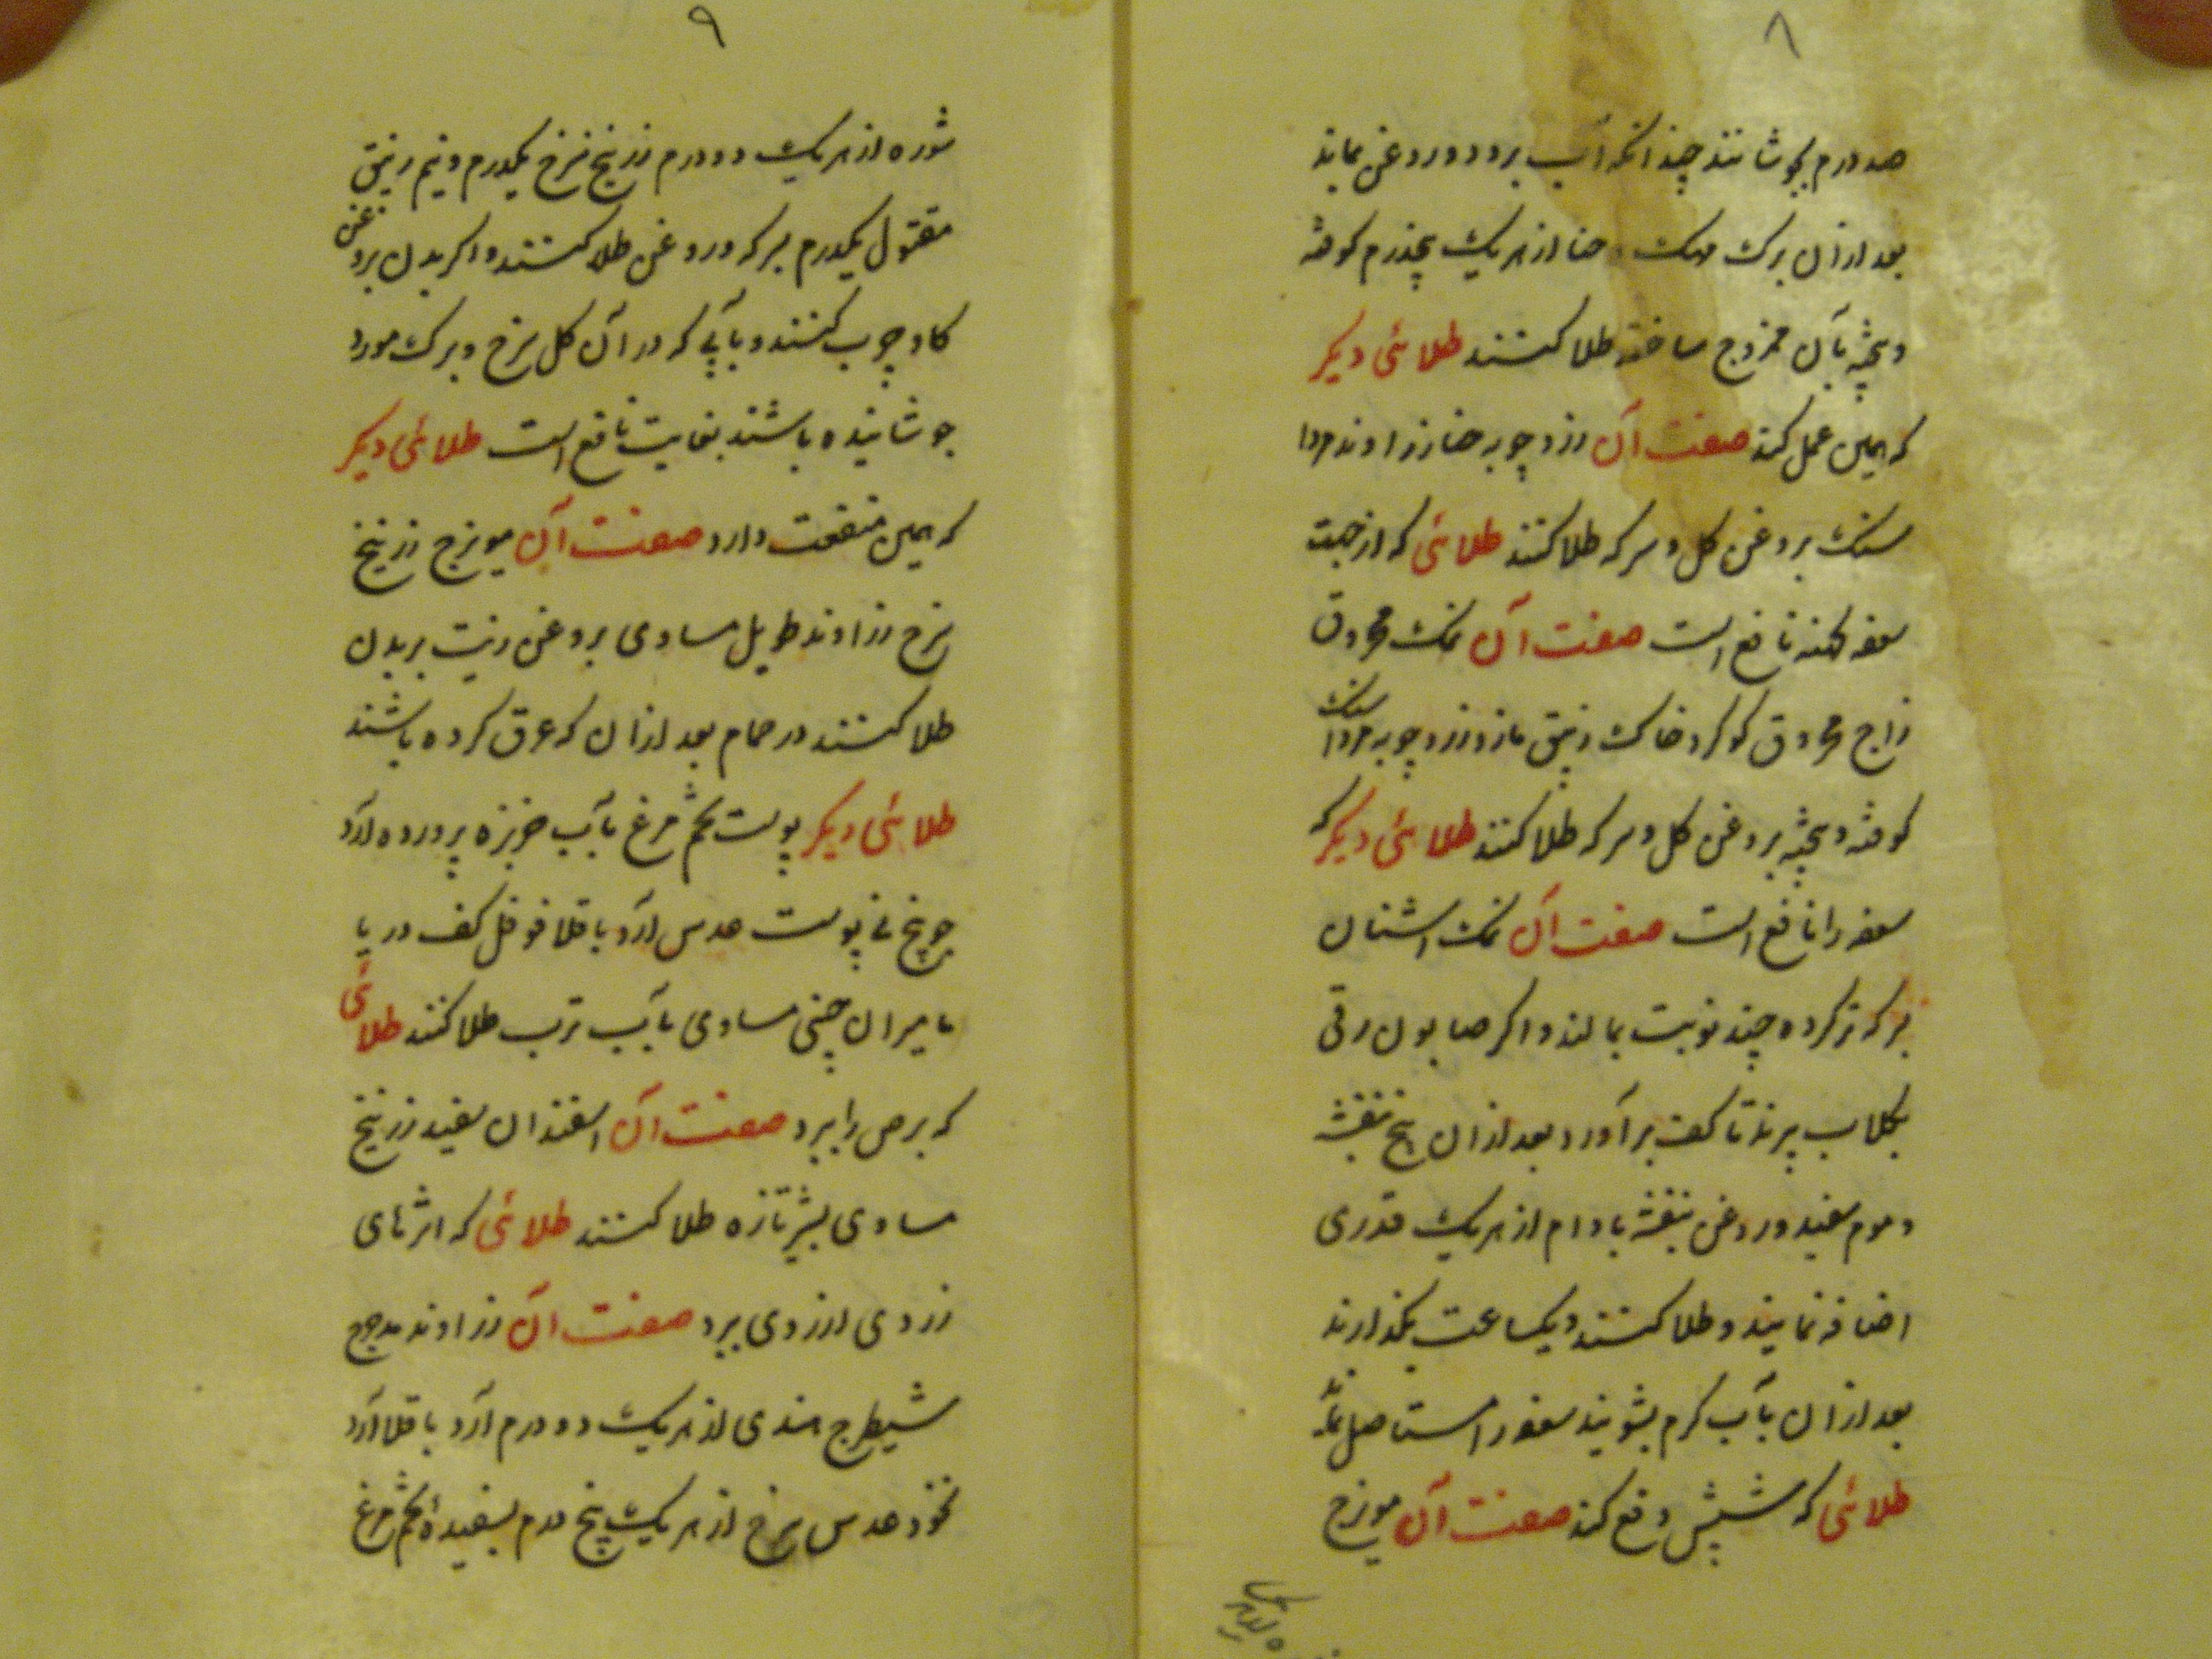 ۸
صد درم بجوشانند چندانکه آب برود و روغن بماند
بعد از آن برک مهک و حنا از هریک پنجدرم کوفته
و پخته بآن ممزوج ساخته طلا کنند طلائی دیکر
که همین عمل کند صفت آن زردچوبه حنا زراوند مردا
سنک بروغن کل و سرکه طلا کنند طلائی که از جهت
سعفه کهنه نافع است صفت آن نمک محروق
زاج محروق کوکرد خاکستر زیبق مازو زردچوبه مرداسنک
کوفته و پخته بروغن کل و سرکه طلا کنند طلائی دیکر که
سعفه را نافع است صفت آن نمک اشنان
بسرکه تر کرده چند نوبت بمالند و اکر صابون رقی
بکلاب بپزند تا کف برآورد بعد از آن بیخ بنفشه
و موم سفید و روغن بنفشه بادام از هریک قدری
اضافه نمایند و طلا کنند و یکساعت بکذارند
بعد از آن بآب کرم بشویند سعفه را مستاصل نماید
طلائی که شپش دفع کند صفت آن میوزج
۹
شوره از هریک دو درم زرنیخ سرخ یکدرم و نیم زیبق
مقتول یکدرم بسرکه و روغن طلا کنند و اکر بدن بروغن
کاو چرب کنند و بآبی که در آن کل سرخ و برک مورد
جوشانیده باشند بغایت نافع است طلائی دیکر
که همین منفعت دارد صفت آن میوزج زرنیخ
سرخ زراوند طویل مساوی بروغن زیت بر بدن
طلا کنند در حمام بعد از آن که عرق کرده باشند
طلائی دیکر پوست تخم مرغ بآب خربزه پرورده آرد
جو بیخ نی پوست عدس آرد باقلا فوفل کف دریا
مامیران چینی مساوی بآب ترب طلا کنند طلائی
که برص را ببرد صفت آن اسفندان سفید زرنیخ
مساوی بشیر تازه طلا کنند طلائی که اثرهای
زردی از روی ببرد صفت آن زراوند مدحرج
شیطرج هندی از هریک دو درم آرد باقلا آرد
نخود عدس سرخ از هریک پنج درم بسفیده تخم مرغ